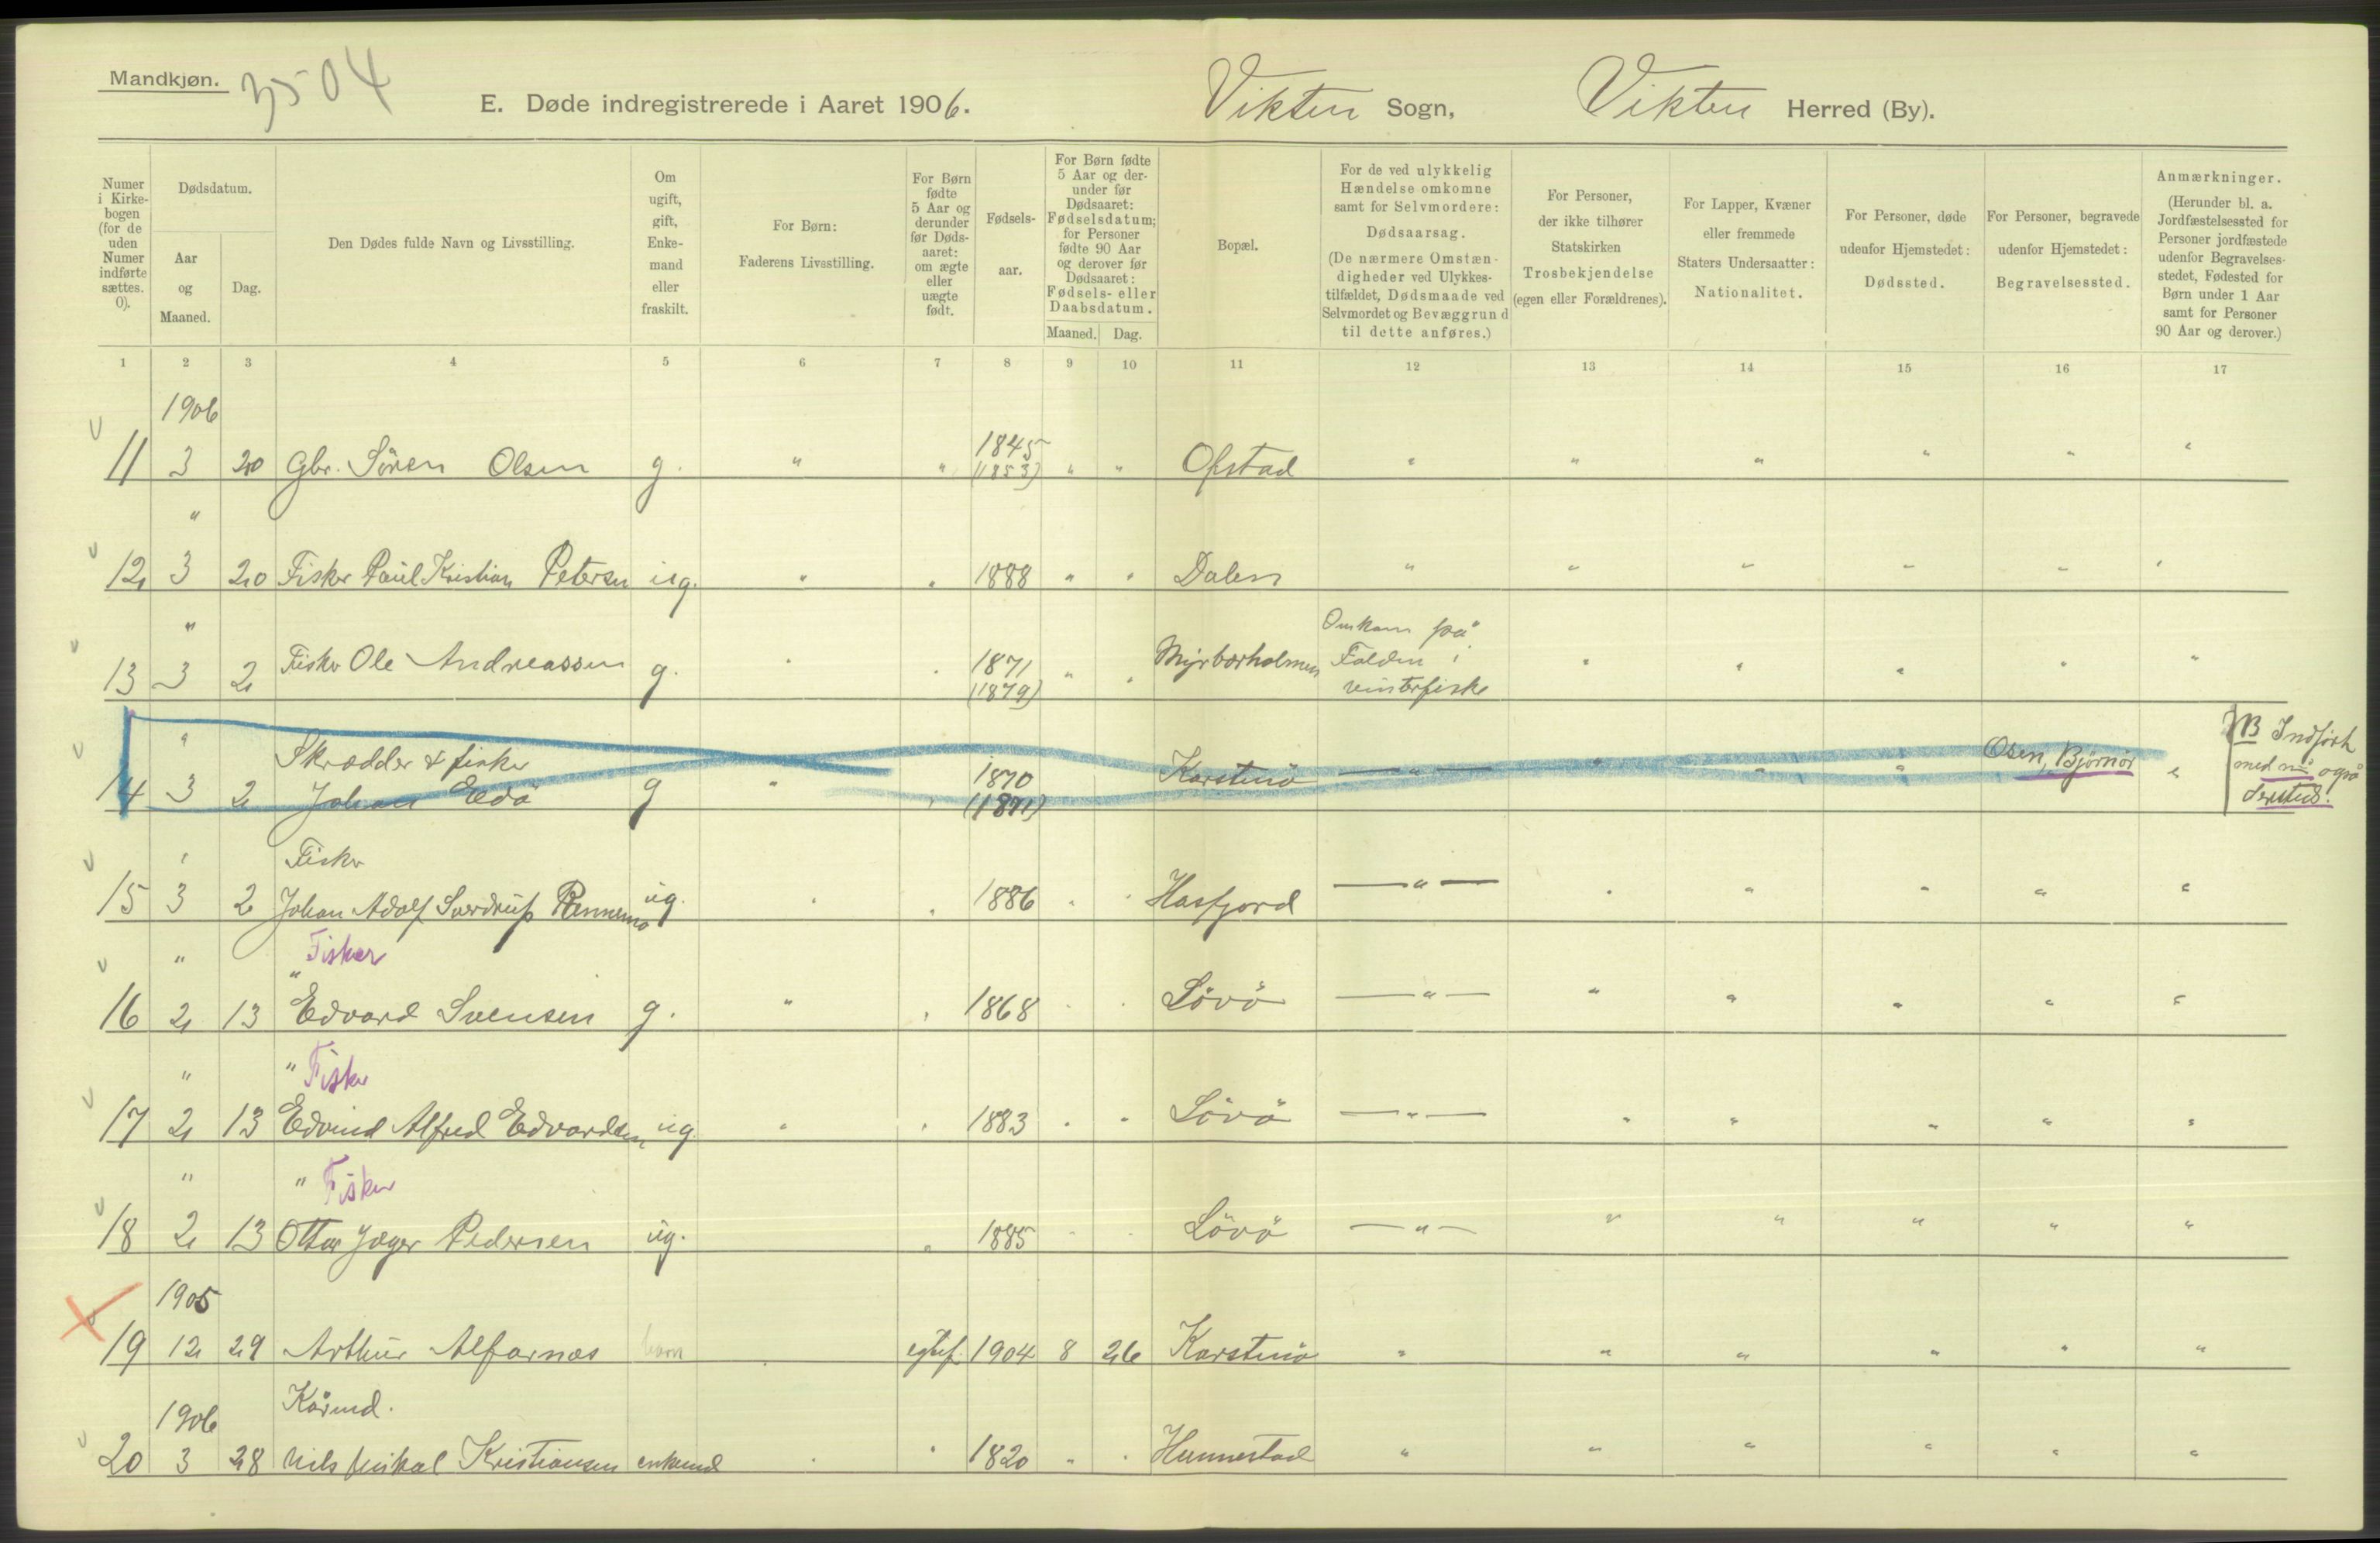 Mandkjøn.
3504
E. Døde indregistrerede i Aaret 1906.
Vikten Sogn,
Vikten Herred (By).
Numer i Kirkebogen (for de uden Numer indførte sættes. 0).
Dødsdatum.
Aar og Maaned.
Dag.
Den Dødes fulde Navn og Livsstilling.
Om ugift, gift, Enkemand eller fraskilt.
For Børn: Faderens Livsstilling.
For Børn fødte 5 Aar og derunder før Dødsaaret: om ægte eller uægte født.
Fødselsaar.
For Børn fødte 5 Aar og derunder før Dødsaaret: Fødselsdatum; for Personer fødte 90 Aar og derover før Dødsaaret: Fødsels- eller Daabsdatum.
Maaned. Dag.
Bopæl.
For de ved ulykkelig Hændelse omkomne samt for Selvmordere: Dødsaarsag. (De nærmere Omstændigheder ved Ulykkestilfældet, Dødsmaade ved Selvmordet og Bevæggrund til dette anføres.)
For Personer, der ikke tilhører Statskirken Trosbekjendelse (egen eller Forældrenes).
For Lapper, Kvæner eller fremmede Staters Undersaatter: Nationalitet.
For Personer, døde udenfor Hjemstedet: Dødssted.
For Personer, begravede udenfor Hjemstedet: Begravelsessted.
Anmærkninger. (Herunder bl. a. Jordfæstelsessted for Personer jordfæstede udenfor Begravelsesstedet, Fødested for Børn under 1 Aar samt for Personer 90 Aar og derover.)
1 2 3 4 5 6 7 8 9 10 11 12 13 14 15 16 17
1906
11 3 20 Gbr. Sören Olsen g. " " 1845 (1853) " " Ofstad " " " " " "
"
12 3 20 Fisker Paul Kristian Petersen ug. " " 1888 " " Dalen " " " " " "
"
13 3 2 Fisker Ole Andreassen g. " " 1871 (1879) " " Myrbærholmen Omkom på Folden i vinterfiske " " " " "
"
Skrædder & fisker
14 3 2 Johan Edö g " " 1870 (1871) Karstenö — " — " " " Osen, Bjørnør "
NB Indført med også dersteds.
"
Fisker
15 3 2 Johan Adolf Sverdrup ug. " " 1886 " " Hasfjord — " — " " " " "
" Fisker
"
16 2 13 Edvard Svensen g. " " 1868 " " Lövö — " — " " " " "
" " Fisker
17 2 13 Edvind Alfred Edvardsen ug. " " 1883 " " Lövö — " — " " " " "
" " Fisker
18 2 13 Ottar Jæger Pedersen ug. " 1885 " " Lövö — " — " " " " "
1905
19 12 29 Arthur Alfarnæs barn " 1904 8 26 Karstenö " " " " " "
1906 Kårmd.
20 3 28 Nils Mikal Kristiansen enkemd " " 1820 " " Hunnestad " " " " " "